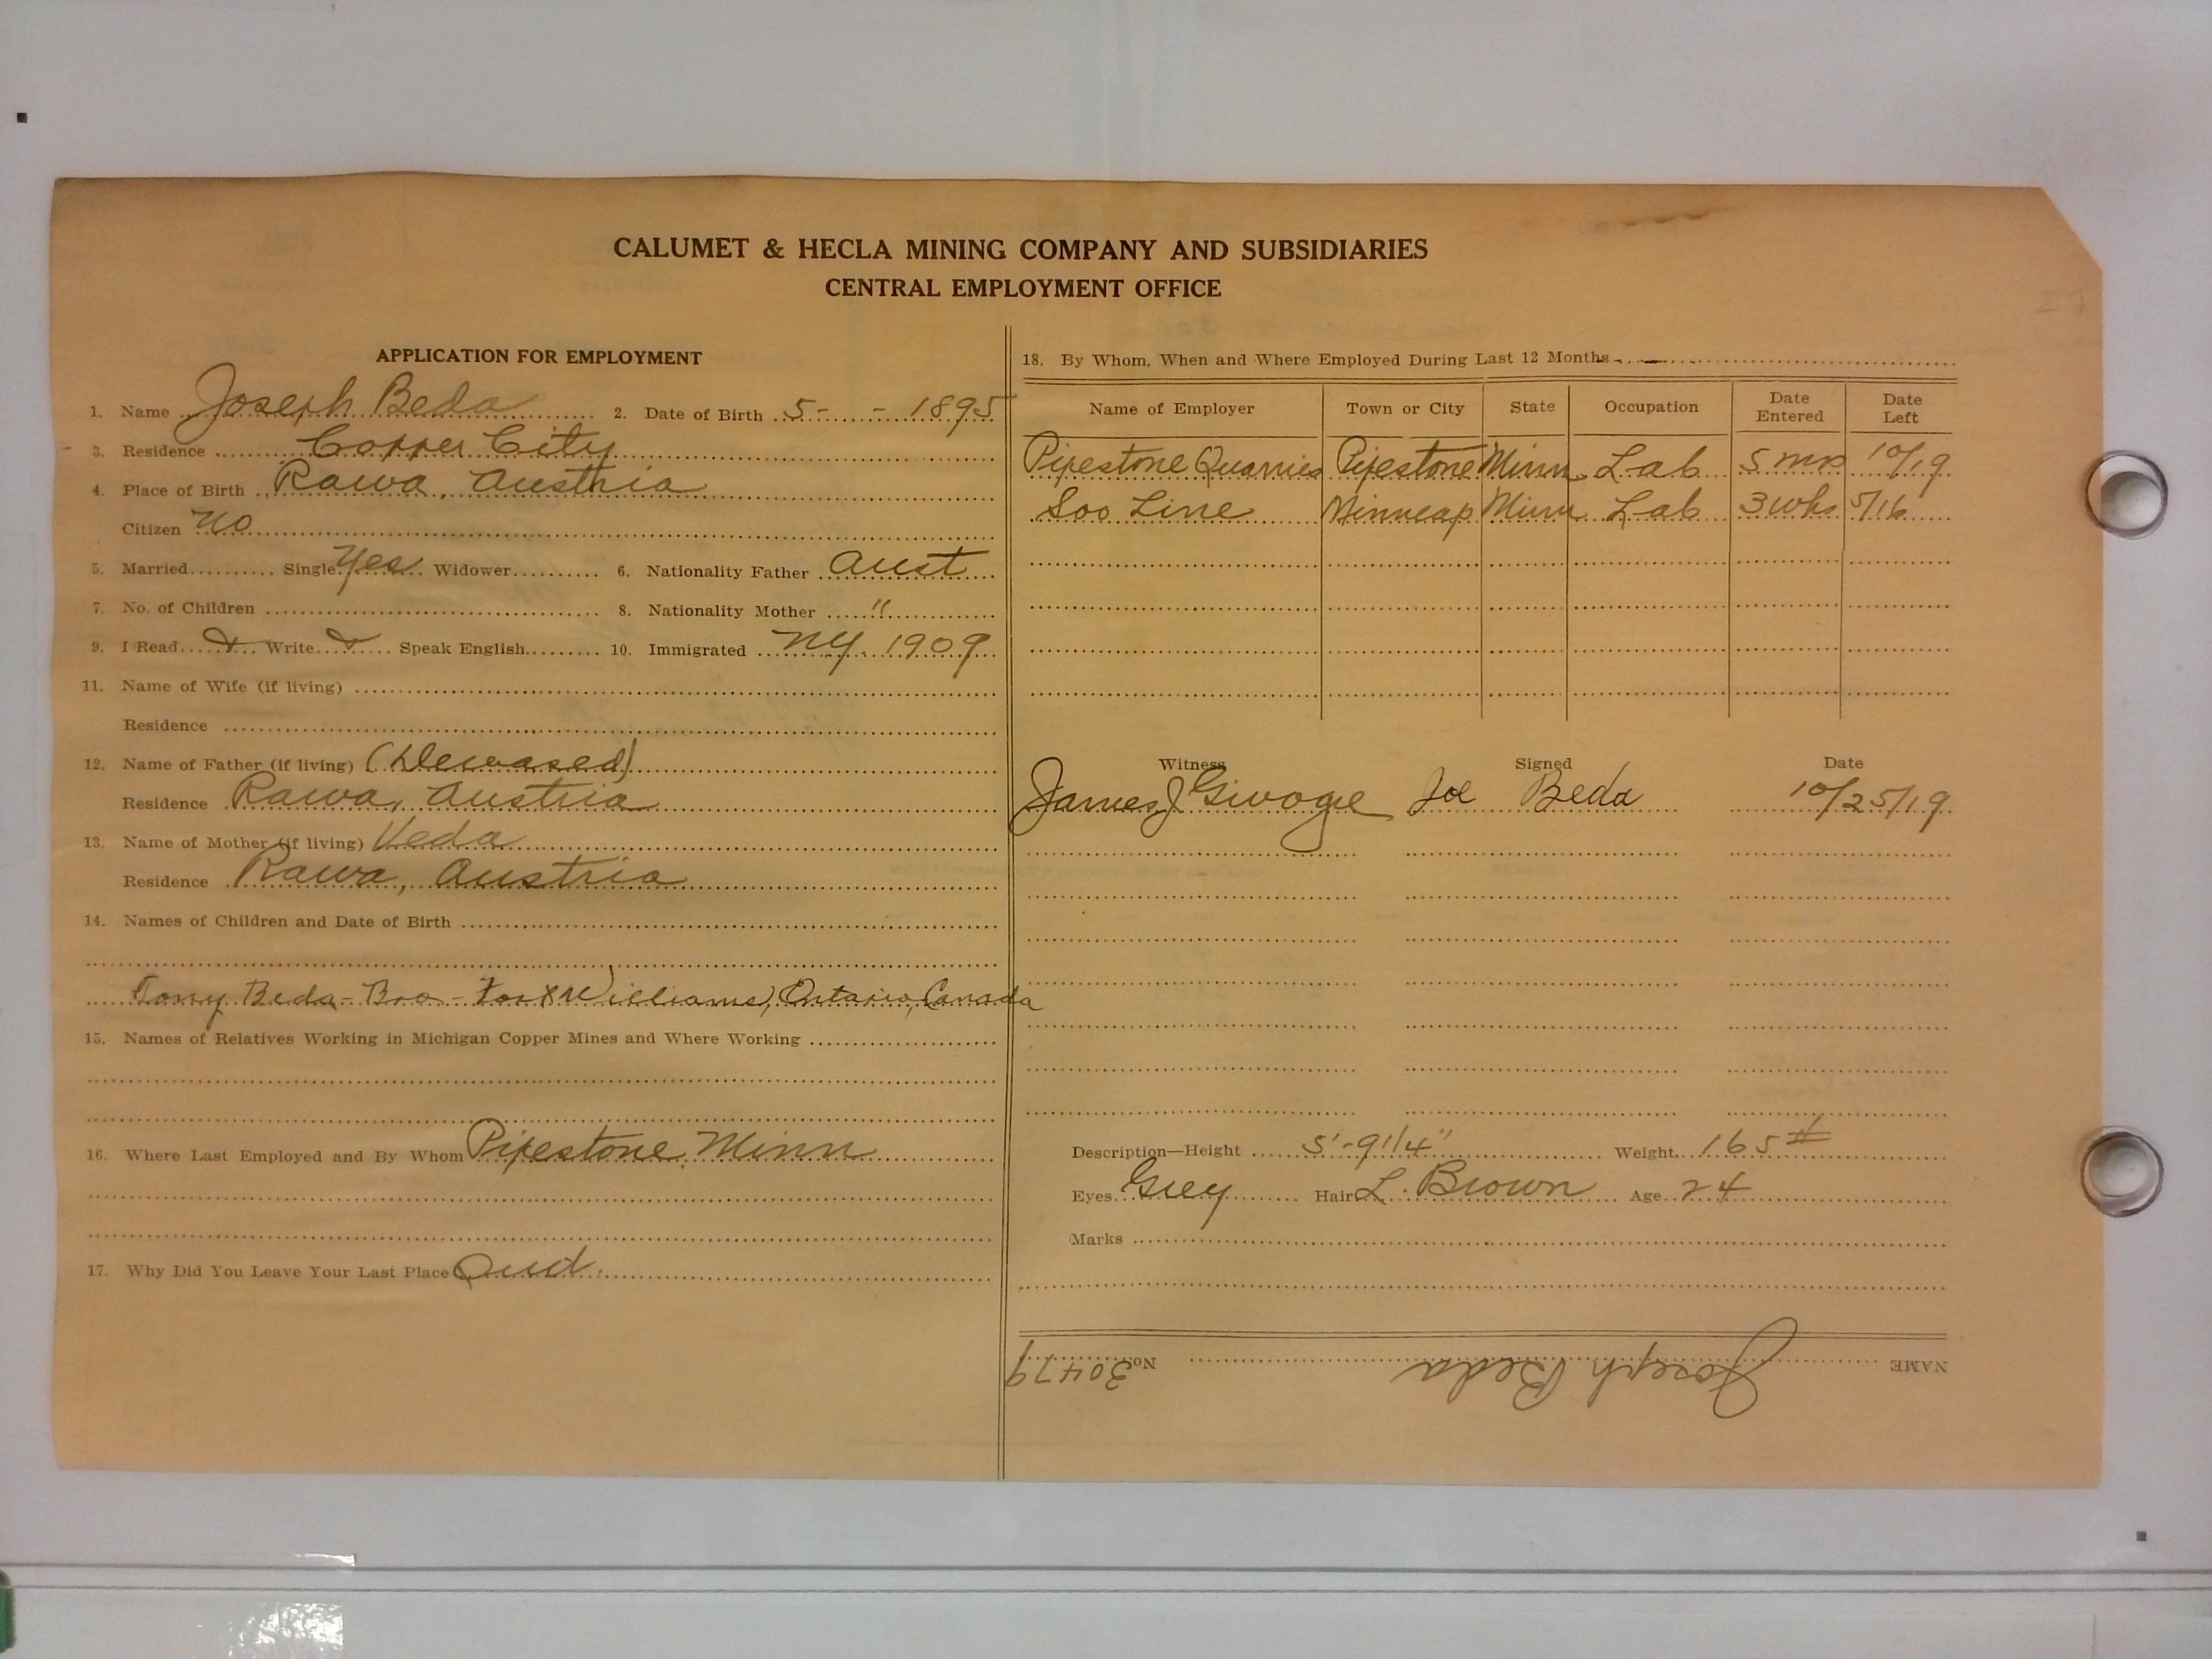 CALUMET & HECLA MINING COMPANY AND SUBSIDIARIES
CENTRAL EMPLOYMENT OFFICE
APPLICATION FOR EMPLOYMENT
1. Name Joseph Beda 2. Date of Birth 5 - - 1895
3. Residence Copper City
4. Place of Birth Rawa, Austria
Citizen No
5. Married Single Yes Widower 6. Nationality Father Aust
7. No. of Children 8. Nationality Mother "
9. I Read Write Speak English 10. Immigrated NY. 1909
11. Name of Wife (if living)
Residence
12. Name of Father (if living) (Deceased)
Residence Rawa, Austria
13. Name of Mother (if living) Veda
Residence Rawa, Austria
14. Names of Children and Date of Birth
Tony Beda - Bro - Williams, Ontario, Canada
15. Names of Relatives Working in Michigan Copper Mines and Where Working
16. Where Last Employed and By Whom Pipestone, Minn
17. Why Did You Leave Your Last Place Quit.
18. By Whom, When and Where Employed During Last 12 Months
Name of Employer Town or City State Occupation Date Entered Date Left
Pipestone Quarries Pipestone Minn Lab 5 mos 10/19
Soo Line Minneap Minn Lab 3 wks 5/16
Witness Signed Date
James J Joe Beda 10/25/19
Description—Height 5'-9 1/4" Weight 165 #
Eyes Grey Hair L. Brown Age 24
Marks
NAME Joseph Beda No. 30479